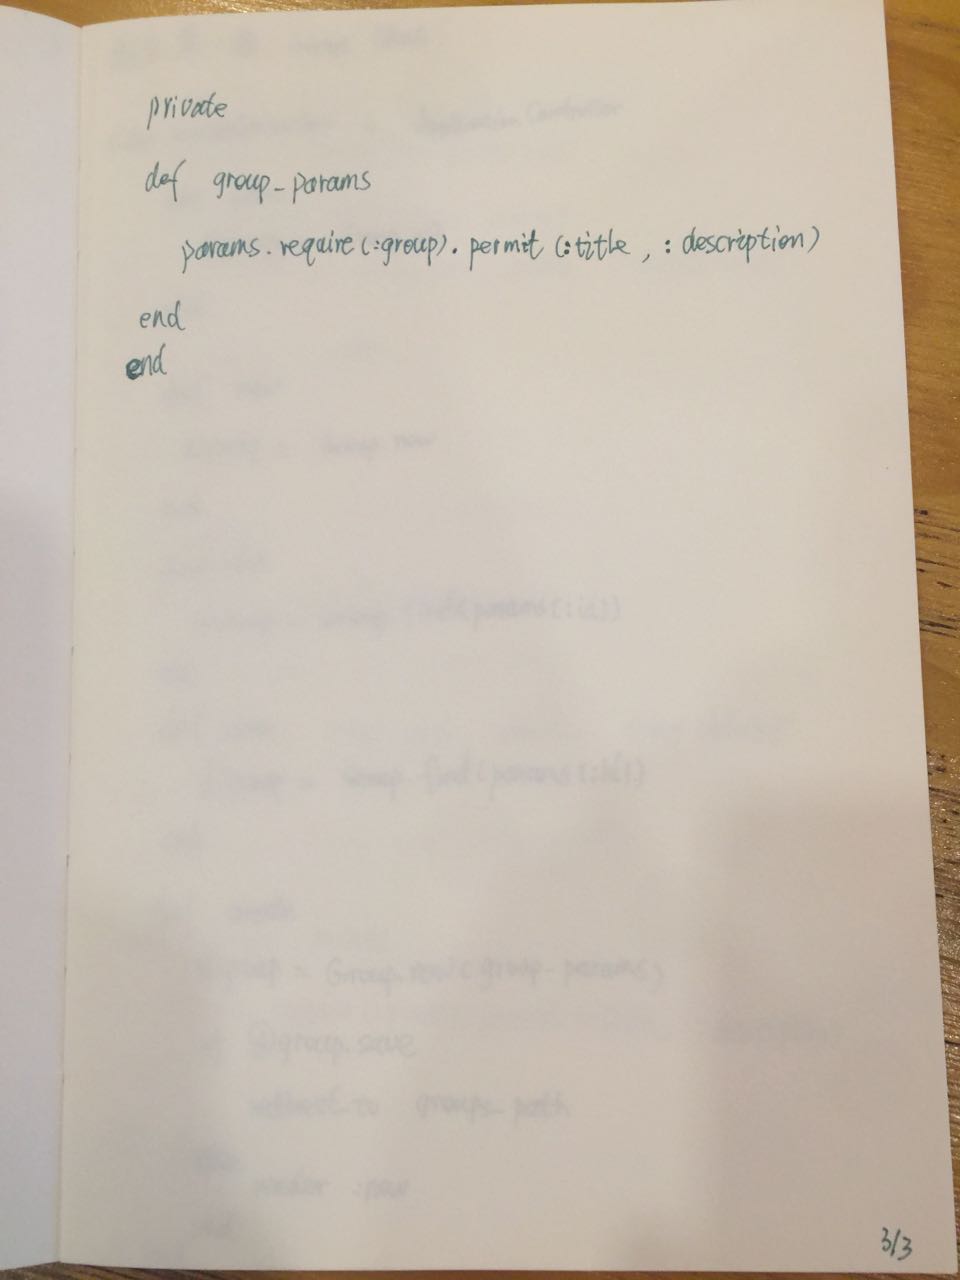 private
def group_params
params.require(:group).permit(:title , : description)
end
end
3/3